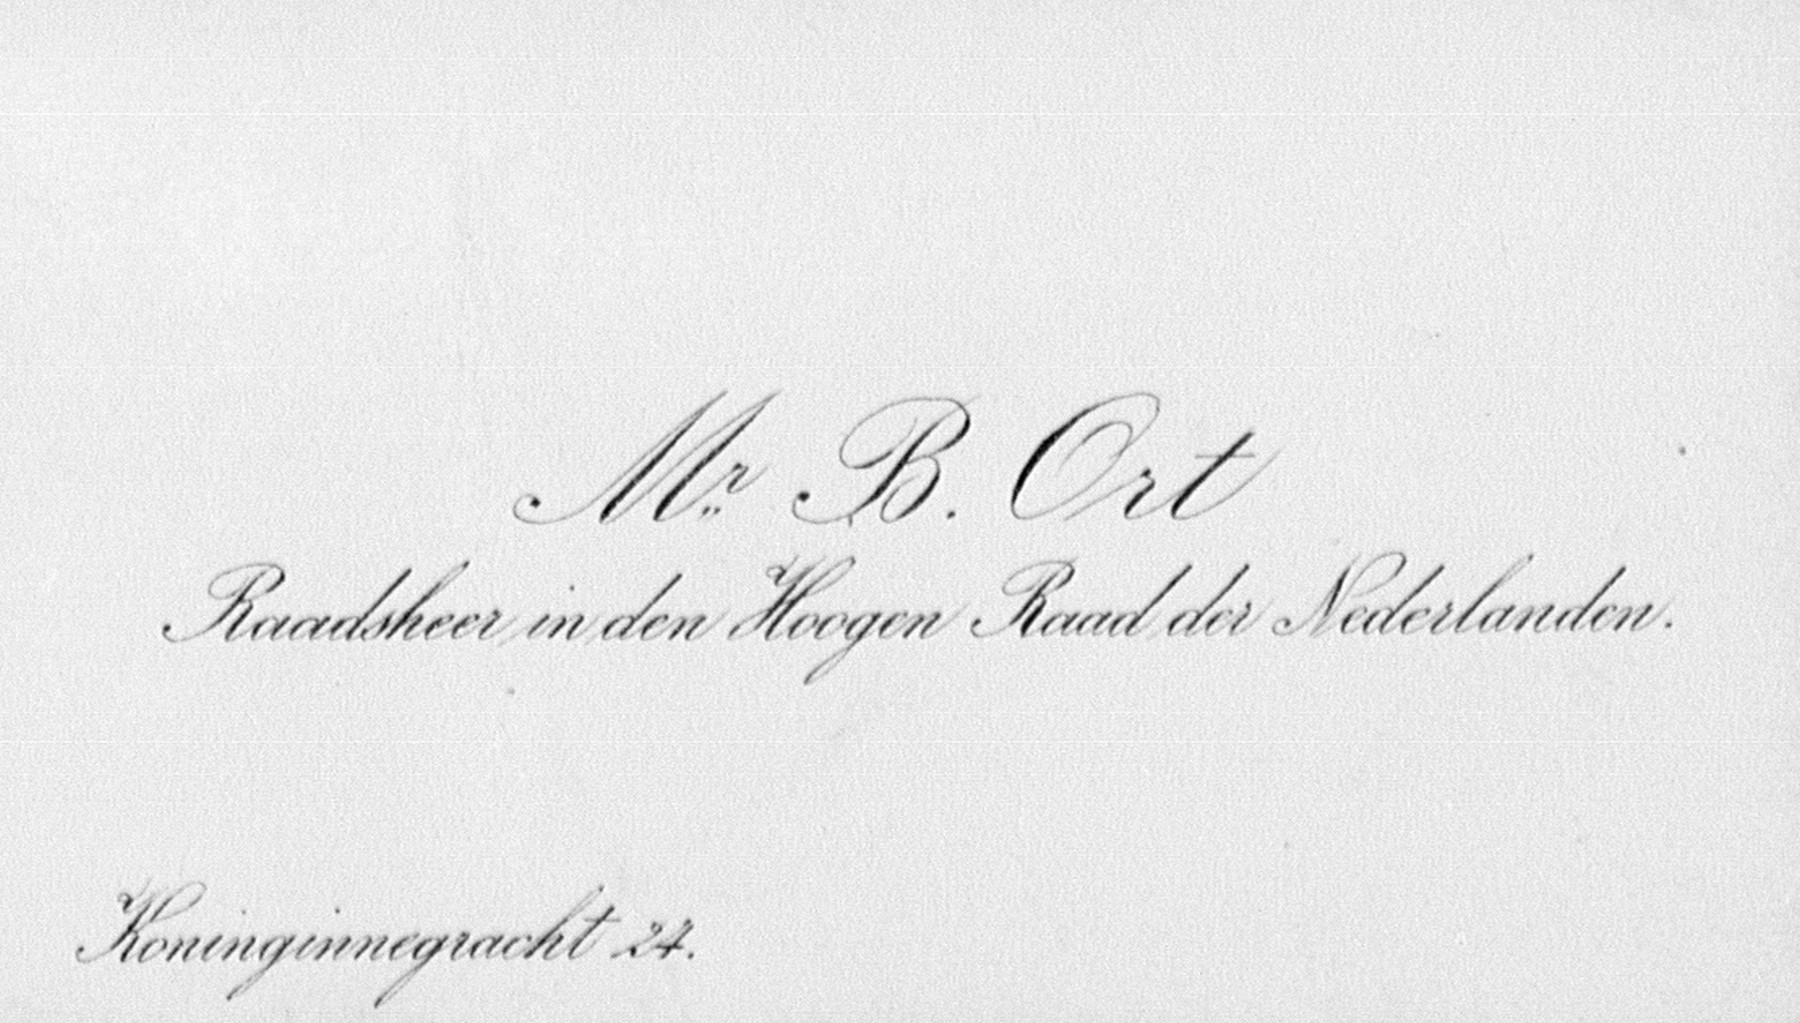 Mr. B. Ort
Raadsheer in den Hoogen Raad der Nederlanden.
Koninginnegracht 24.